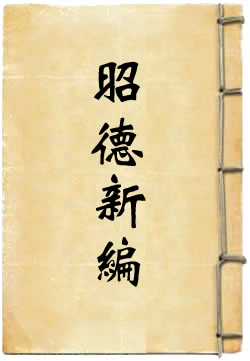 昭德新編